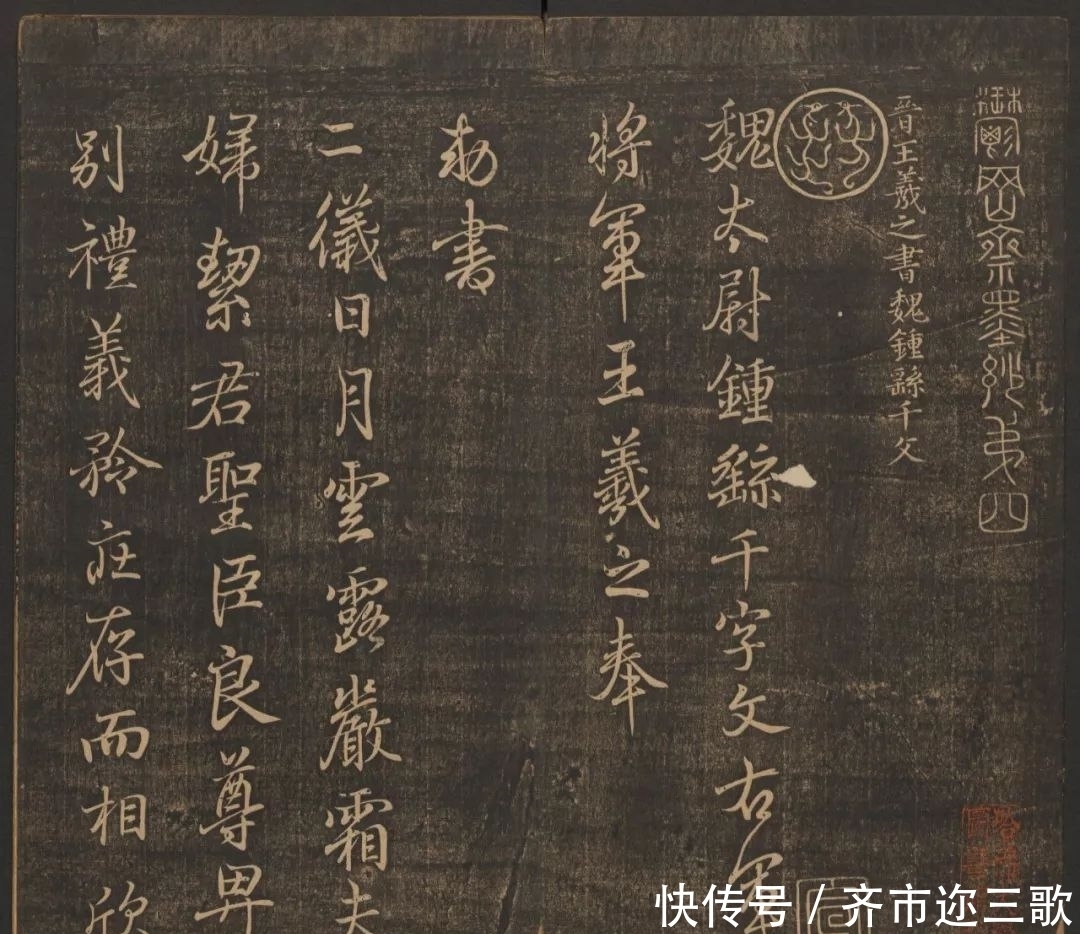 渤海藏真帖弟四
晋王羲之書魏鍾繇千文
魏太尉鍾繇千字文右軍
將軍王羲之奉
勅書
二儀日月雲露嚴霜夫
婦絜君聖臣良尊卑
別禮義矜莊存而相欣
快传号 / 齐市迩三歌